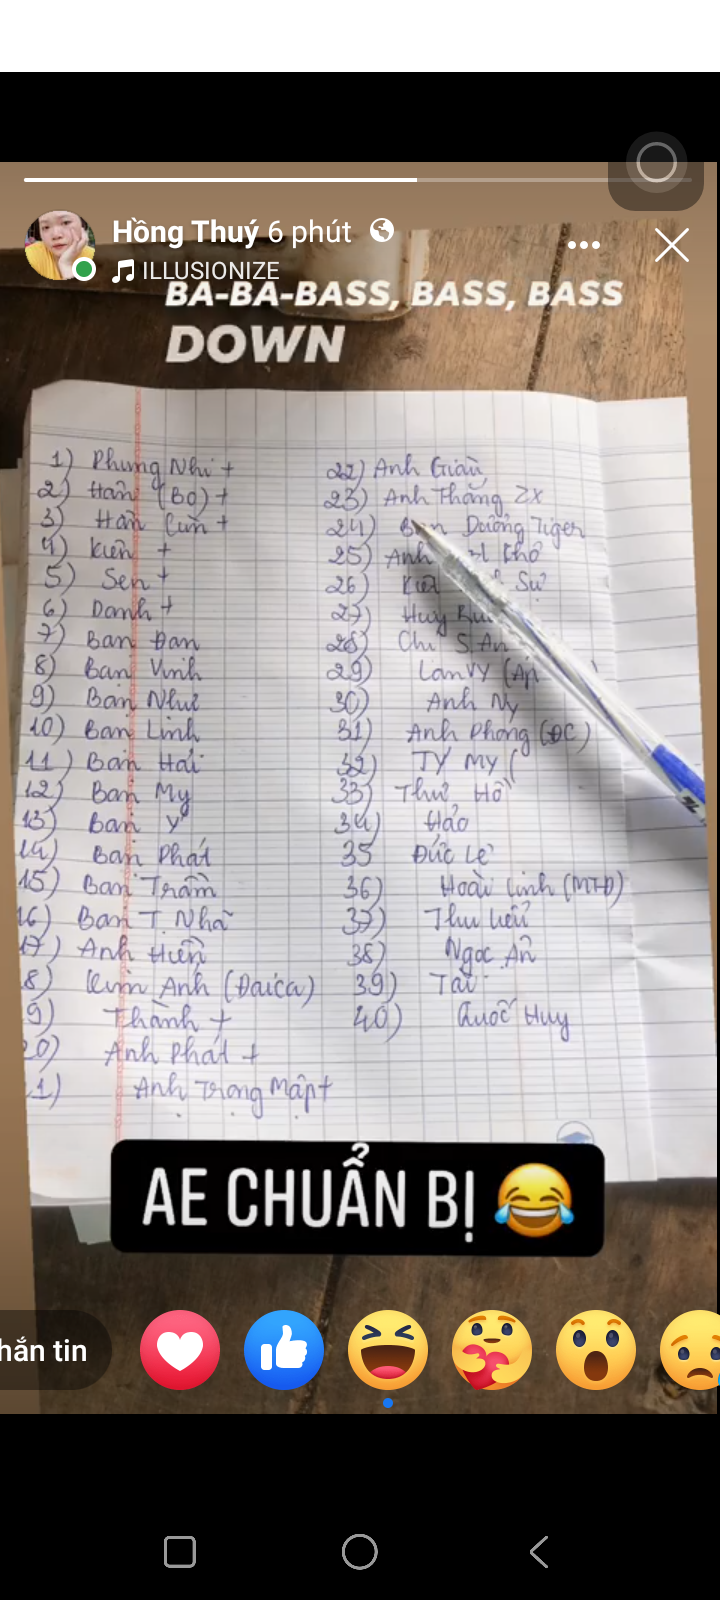 Hồng Thuý 6 phút
ILLUSIONIZE
BA-BA-BASS, BASS, BASS
DOWN
1) Phụng Nhi +
2) Hân (Bo) +
3) Hân Cún +
4) Kiên +
5) Sen +
6) Danh +
7) Bạn Đan
8) Bạn Vinh
9) Bạn Như
10) Bạn Linh
11) Bạn Hải
12) Bạn My
13) Bạn Ý
14) Bạn Phát
15) Bạn Trâm
16) Bạn T. Nhã
17) Anh Hiền
8) Kim Anh (Đaica)
9) Thành +
20) Anh Phát +
1) Anh Trọng Mập +
22) Anh Giàu
23) Anh Thắng ZX
24) Dưỡng Tiger
25) Anh Khô
26) Sự
27) Huy
28) Chị S An
29) Lan Vy
30) Anh Ny
31) Anh Phong (ĐC)
32) TY My (
33) Thư Hồ
34) Hảo
35 Đức Lê
36) Hoài Linh (MTĐ)
37) Thu Liễu
38) Ngọc Ân
39) Tài
40) Quốc Huy
AE CHUẨN BỊ
hắn tin